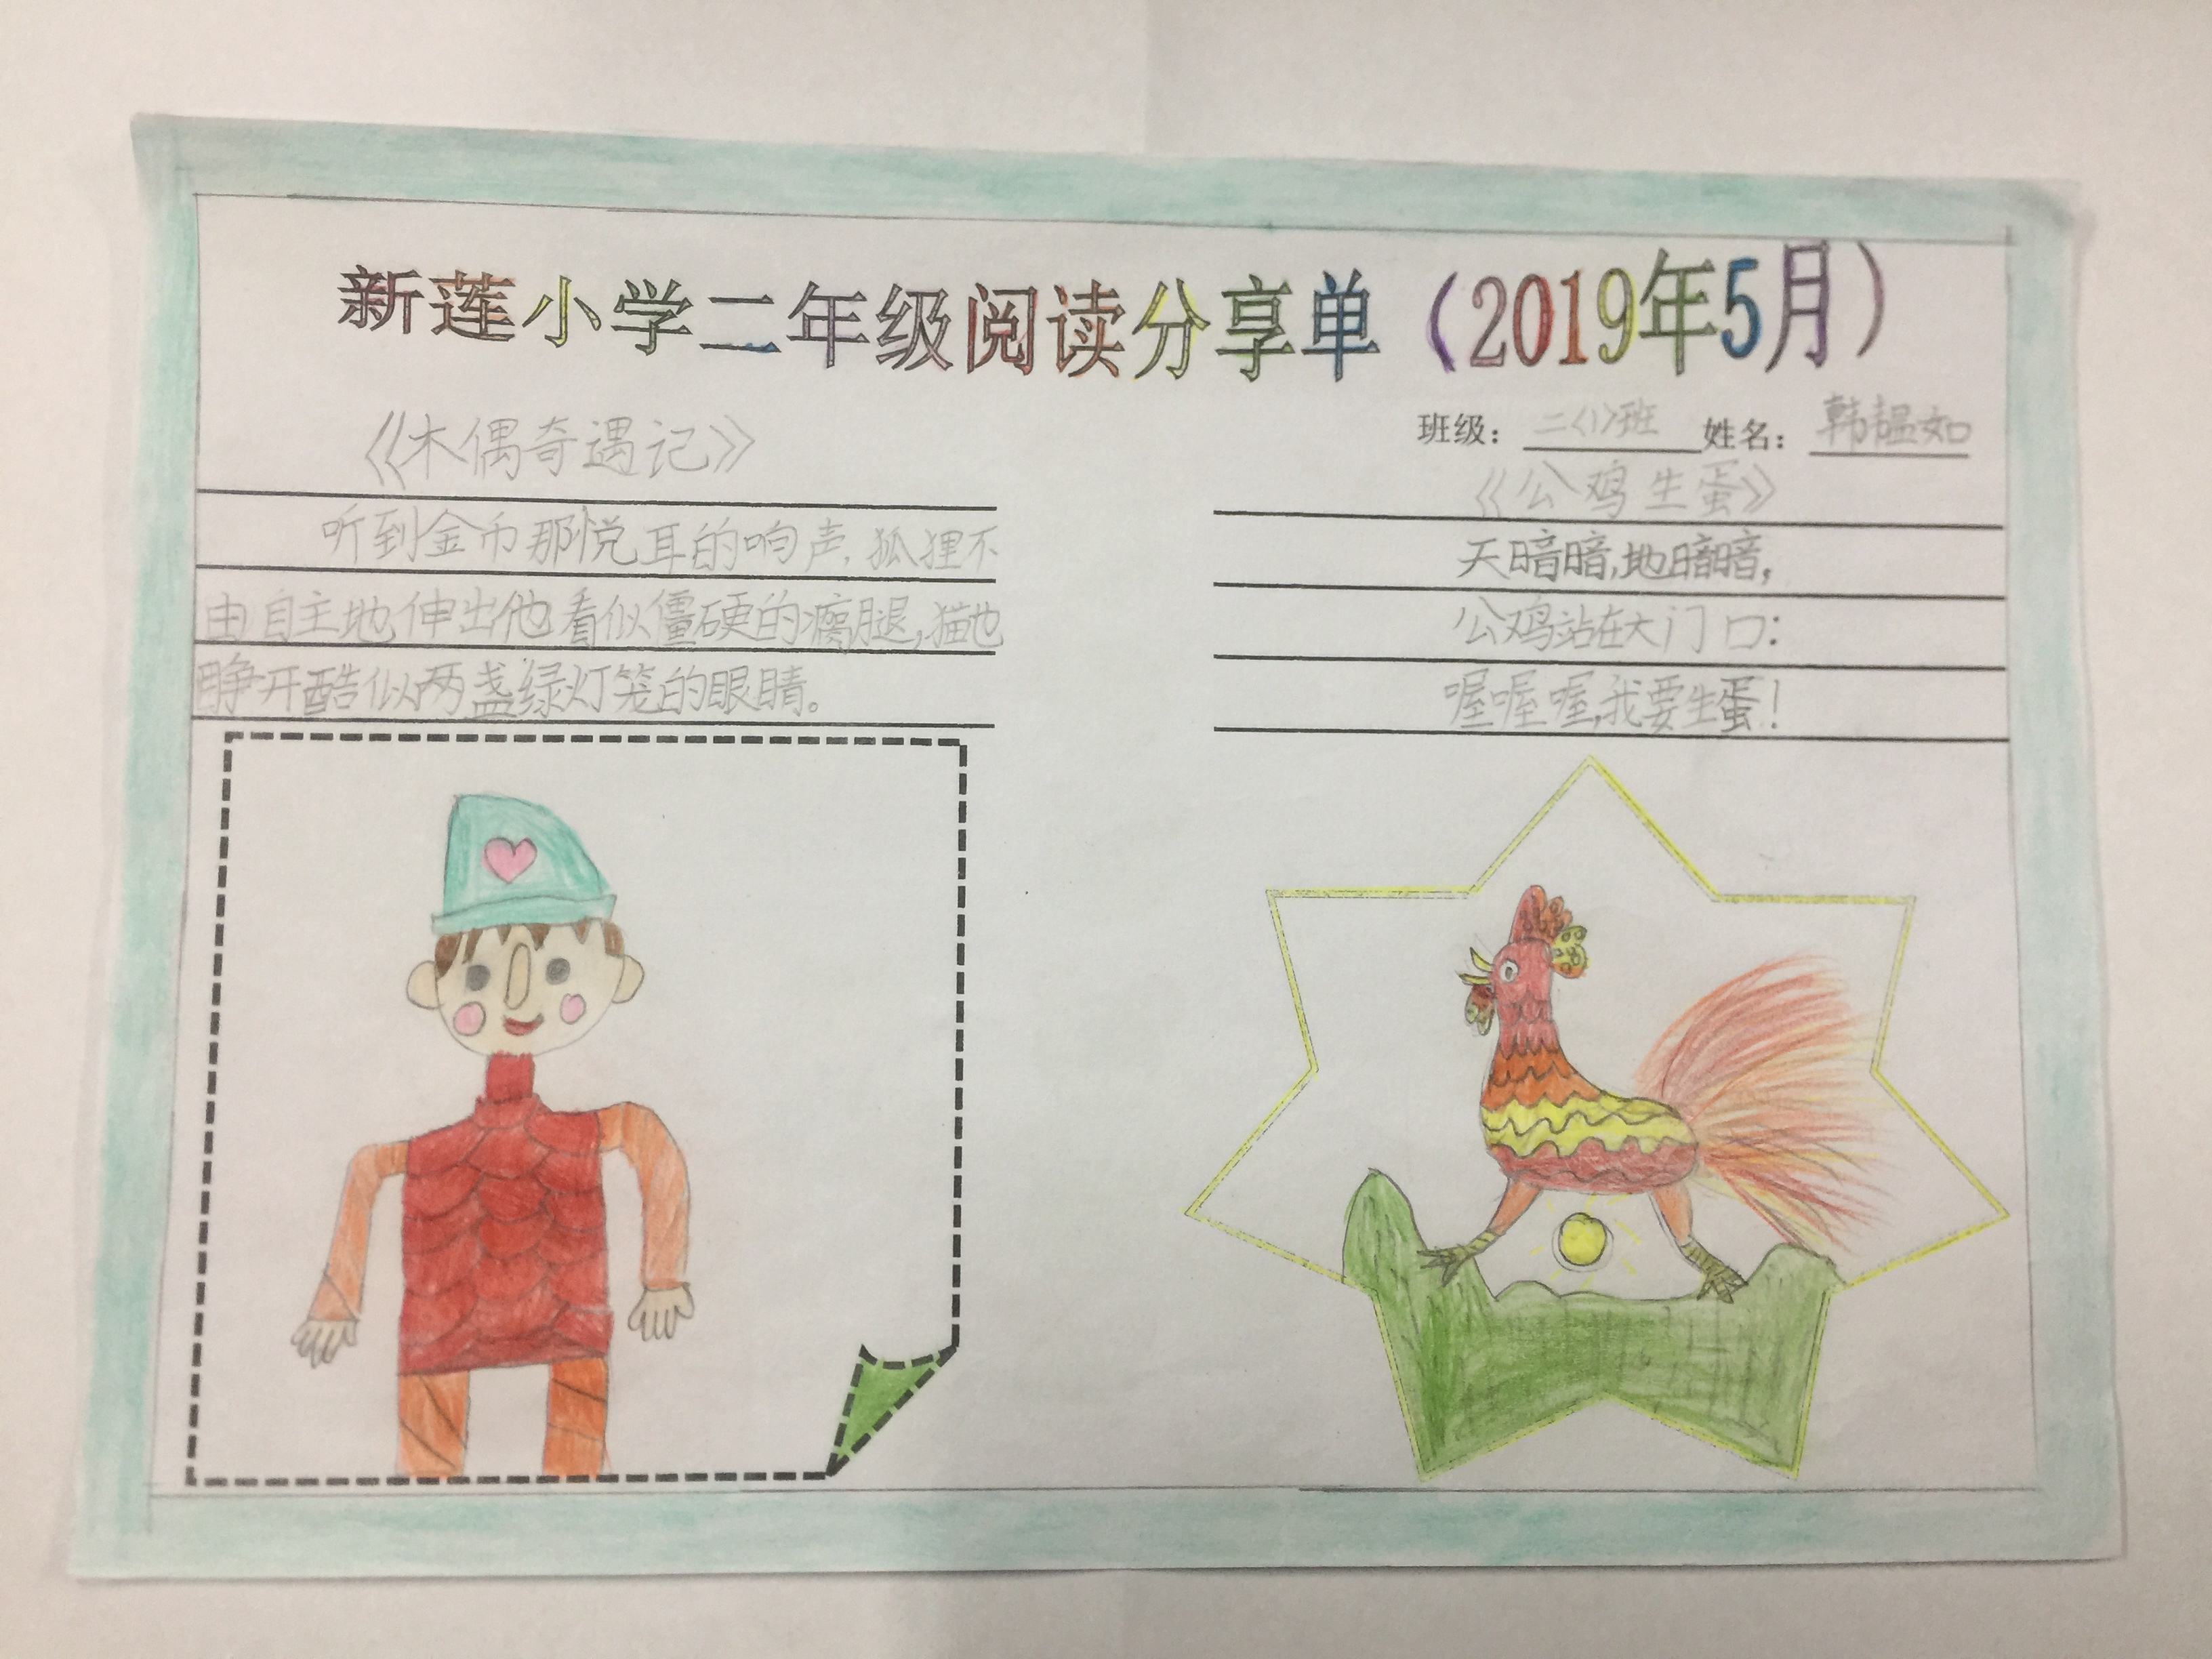 新莲小学二年级阅读分享单（2019年5月）
班级：二（1）班 姓名：韩韫如
《木偶奇遇记》
听到金币那悦耳的响声，狐狸不
由自主地伸出他看似僵硬的瘸腿，猫也
睁开酷似两盏绿灯笼的眼睛。
《公鸡生蛋》
天暗暗，地暗暗，
公鸡站在大门口：
喔喔喔，我要生蛋！